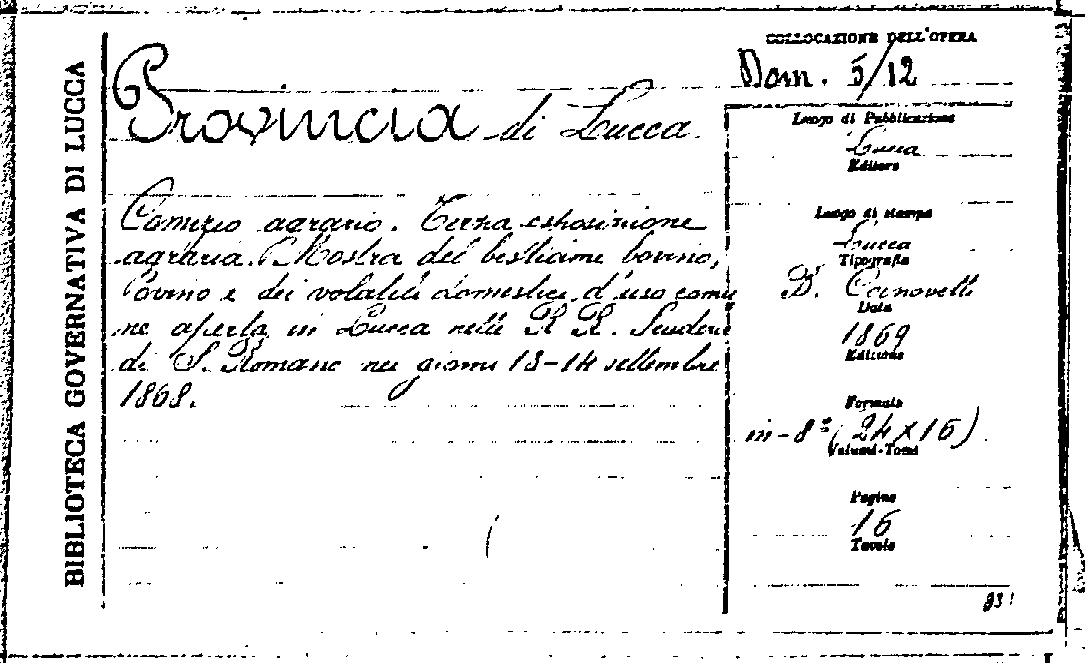 BIBLIOTECA GOVERNATIVA DI LUCCA
Provincia di Lucca
Comizio agrario. Terza esposizione
agraria. Mostra del bestiame bovino,
ovino e dei volatili domestici d'uso comu
ne aperta in Lucca nelle R R. Scuderie
di S. Romano nei giorni 13-14 settembre
1868.
COLLOCAZIONE DELL'OPERA
Dom. 5/12
Luogo di Pubblicazione
Lucca
Editore
Luogo di stampa
Lucca
Tipografia
B. Canovetti
Data
1869
Edizione
Formato
in-8° (24x16)
Volumi-Tomi
Pagine
16
Tavole